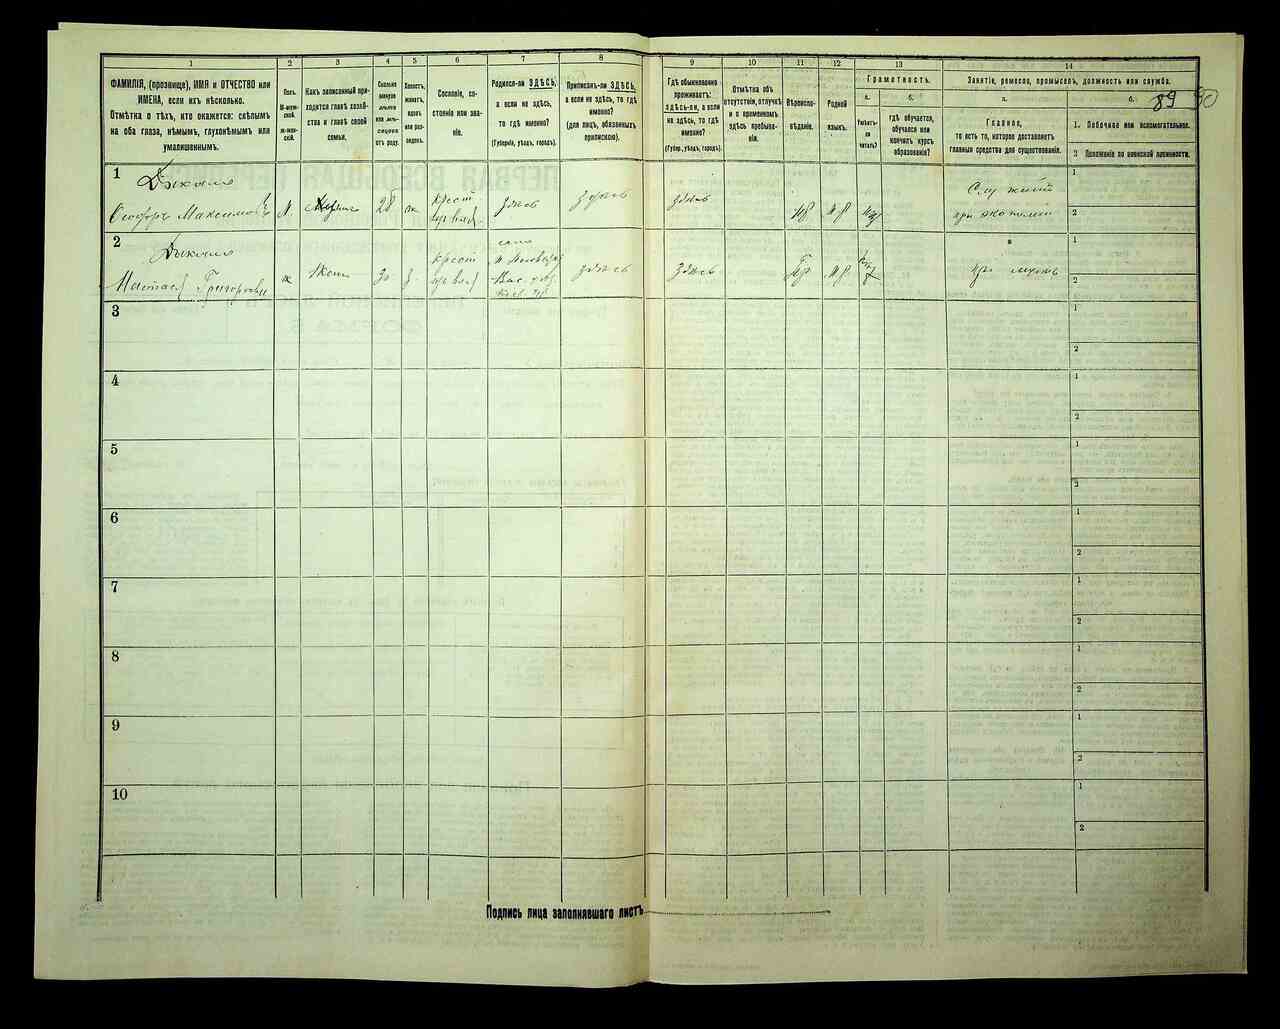 1
ФАМИЛІЯ, (прозвище), ИМЯ и ОТЧЕСТВО или
ИМЕНА, если ихъ нѣсколько.
Отмѣтка о тѣхъ, кто окажется: слѣпымъ
на оба глаза, нѣмымъ, глухонѣмымъ или
умалишеннымъ.
2
Полъ.
М-муж-
ской.
Ж-жен-
ской.
3
Какъ записанный при-
ходится главѣ хозяй-
ства и главѣ своей
семьи.
4
Сколько
минуло
лѣтъ
или мѣ-
сяцевъ
отъ роду.
5
Холостъ,
женатъ,
вдовъ
или раз-
веденъ.
6
Сословіе, со-
стояніе или зва-
ніе.
7
Родился-ли ЗДѢСЬ,
а если не здѣсь,
то гдѣ именно?
(Губернія, уѣздъ, городъ).
8
Приписанъ-ли ЗДѢСЬ,
а если не здѣсь, то гдѣ
именно?
(для лицъ, обязанныхъ
припискою).
9
Гдѣ обыкновенно
проживаетъ:
ЗДѢСЬ-ли, а если
не здѣсь, то гдѣ
именно?
(Губер., уѣздъ, городъ).
10
Отмѣтка объ
отсутствіи, отлучкѣ
и о временномъ
здѣсь пребыва-
ніи.
11
Вѣроиспо-
вѣданіе.
12
Родной
языкъ.
13
Грамотность.
а.
Умѣетъ-
ли
читать?
б.
гдѣ обучается,
обучался или
кончилъ курсъ
образованія?
14
Занятіе, ремесло, промыселъ, должность или служба.
а.
Главное,
то есть то, которое доставляетъ
главныя средства для существованія.
б.
89 90
1. Побочное или вспомогательное.
2 Положеніе по воинской повинности.
1
Феодоръ Максимовъ
м.
28
ж
крест
здѣсь
здѣсь
здѣсь
при экономіи
1
2
2
Григорьевна
ж
жена
30
з
крест
здѣсь
здѣсь
при мужѣ
1
2
3
1
2
4
1
2
5
1
2
6
1
2
7
1
2
8
1
2
9
1
2
10
1
2
Подпись лица заполнявшаго листъ